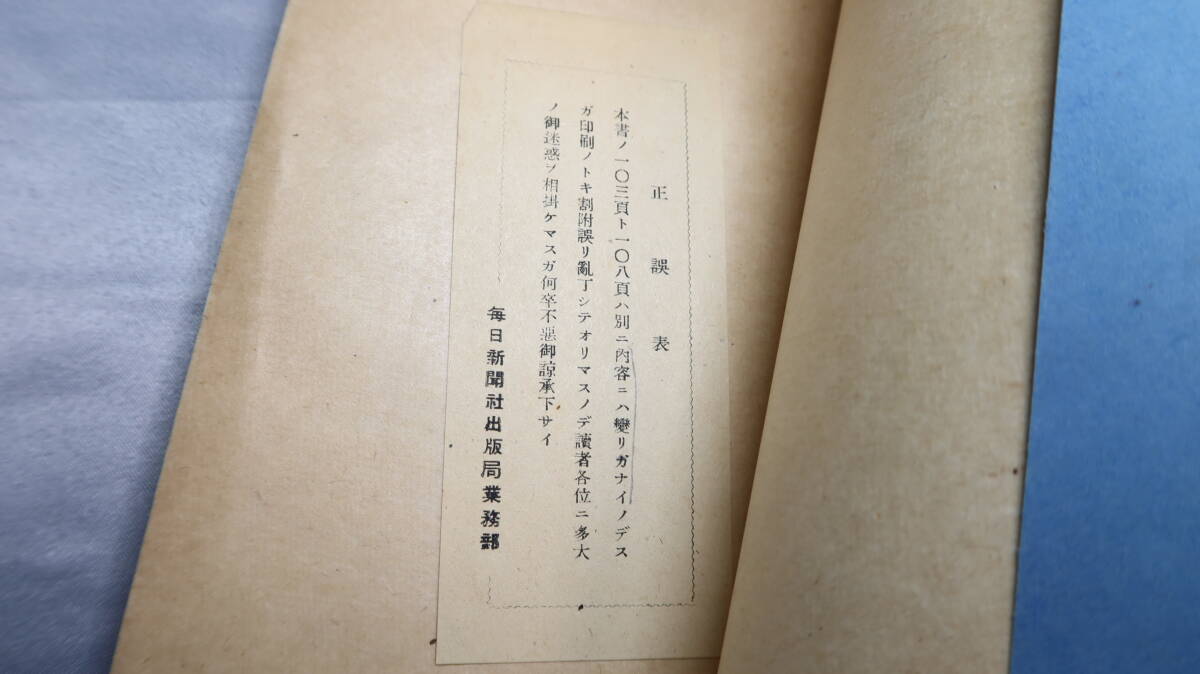 正誤表
本書ノ一〇三頁ト一〇八頁ハ別ニ內容ニハ變リガナイノデス
ガ印刷ノトキ割附誤リ亂丁シテオリマスノデ讀者各位ニ多大
ノ御迷惑ヲ相掛ケマスガ何卒不惡御諒承下サイ
每日新聞社出版局業務部